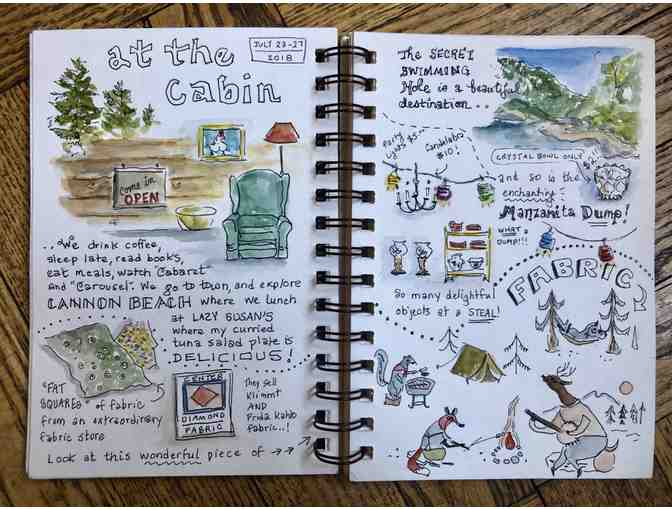 at the
Cabin
JULY 23-27
2018
come in
OPEN
..We drink coffee,
sleep late, read books,
eat meals, watch "Cabaret"
and "Carousel". We go to town, and explore
CANNON BEACH where we lunch
at LAZY SUSAN'S
where my curried
tuna salad plate is
DELICIOUS!
"FAT
SQUARES" of fabric
from an extraordinary
fabric store
CENTER
DIAMOND
FABRIC
They sell
Klimmt
AND
Frida Kahlo
fabric..!
Look at this wonderful piece of
The SECRET
SWIMMING
Hole is a beautiful
destination...
Party
Lights $5-
Candelabra
$10!
CRYSTAL BOWL ONLY
and so is the
enchanting
Manzanita Dump!
WHAT
A
DUMP!!!
So many delightful
objects at a STEAL!
FABRIC